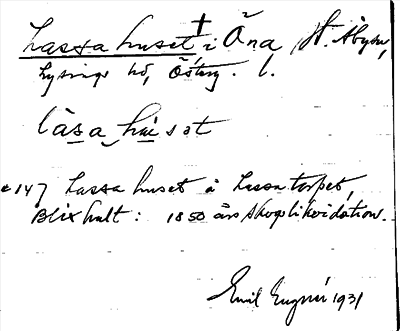 Lassa huset † i Åna, St. Åby sn,
Lysings hd, Österg. l.
låsa huset
147 Lassa huset å Lassatorpet,
Blixhult: 1850 års skogslikvidation.
Emil 1931